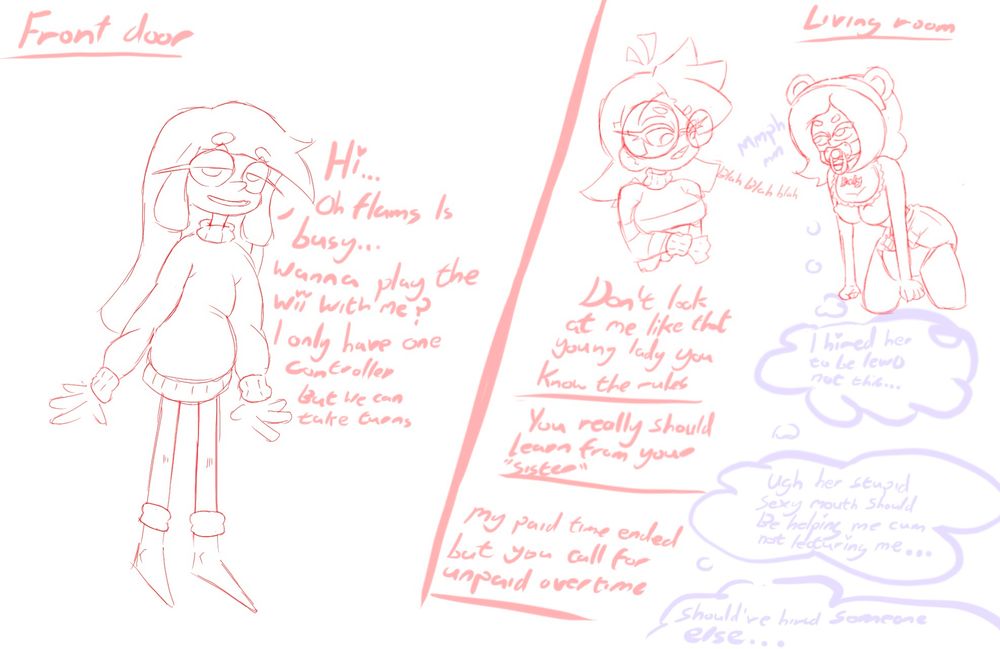 Front door
Hi...
Oh flams Is
busy...
wanna play the
wii with me?
I only have one
controller
but we can
take turns
Living room
Mmph
mm
blah blah blah
Don't look
at me like that
young lady you
know the rules
You really should
learn from your
"sister"
my paid time ended
but you call for
unpaid overtime
I hired her
to be lewd
not this...
Ugh her stupid
sexy mouth should
be helping me cum
not lecturing me...
Should've hired someone
else...